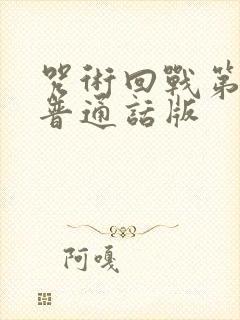 咒術回戰第
普通話版
阿嘎